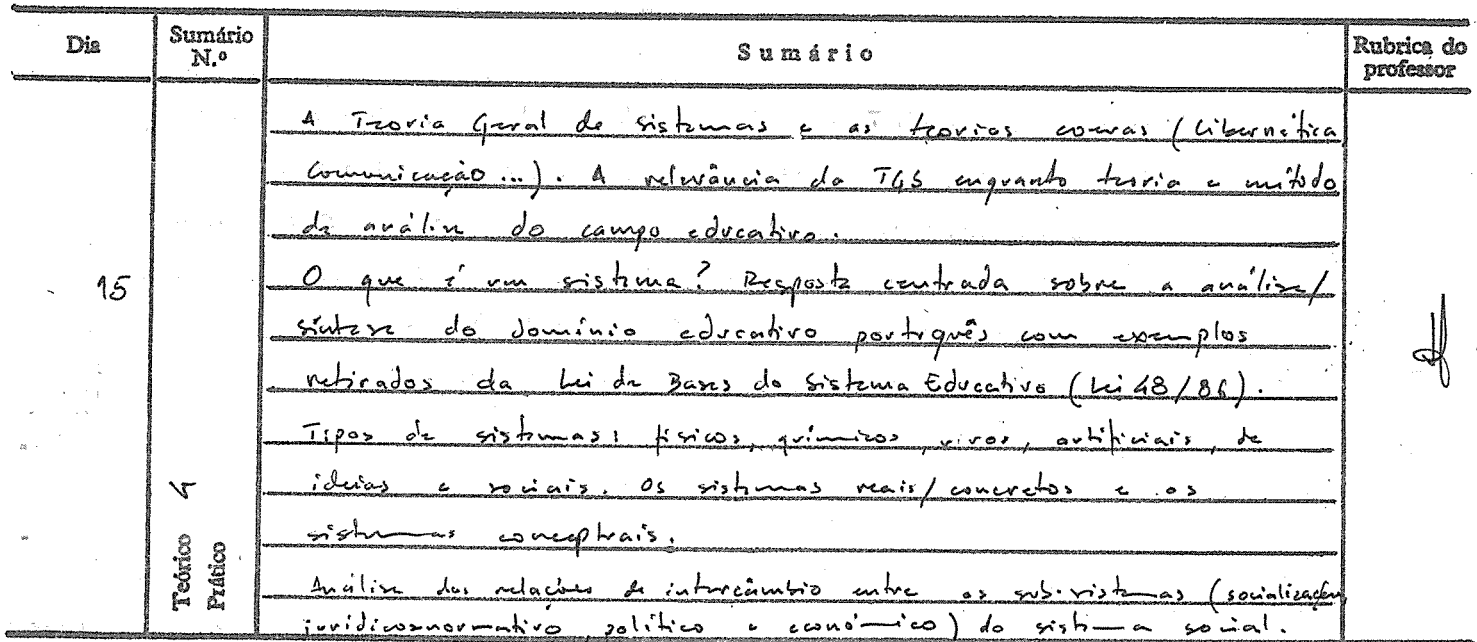 Dia
Sumário N.º
Sumário
Rubrica do professor
A Teoria Geral de sistemas e as teorias conexas (Cibernética
Comunicação ...). A relevância da TGS enquanto teoria e método
de análise do campo educativo.
15
O que é um sistema? Resposta centrada sobre a análise/
síntese do domínio educativo português com exemplos
retirados da Lei de Bases do Sistema Educativo (Lei 48/86).
Tipos de sistemas: físicos, químicos, vivos, artificiais, de
ideias e sociais. Os sistemas reais/concretos e os
sistemas conceptuais.
4
Teórico
Prático
Análise das relações de intercâmbio entre os sub-sistemas (socialização
jurídico-normativo, político e económico) do sistema social.